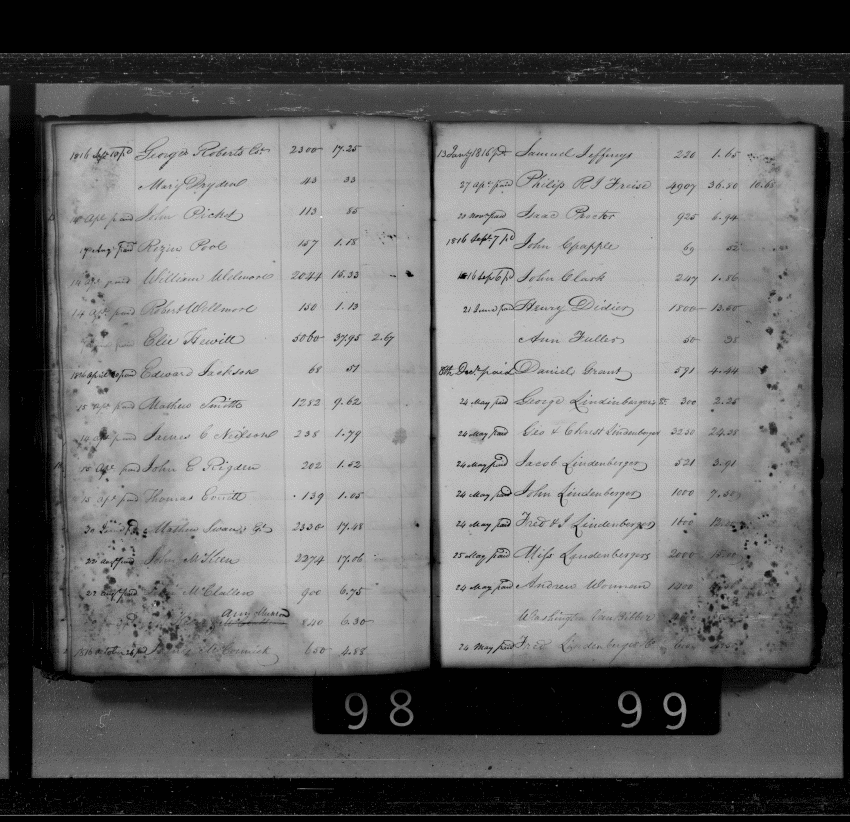 1816 Sept 10 pd George Roberts Est 2300 17.25
Mary Dryden 43 33
apl paid John Pickel 113 85
Augt paid Rezin Pool 157 1.18
14 apl paid William Welmore 2044 15.33
14 apl paid Robert Wellmore 150 1.13
Elie Hewitt 5060 37.95 2.67
1816 April paid Edward Jackson 68 51
15 apl paid Mathew Smith 1282 9.62
14 apl paid James C Neilson 238 1.79
15 apl paid John C Rigden 202 1.52
15 apl paid Thomas Everitt 139 1.05
30 Mathew Swan's 2330 17.48
22 augt paid John McKeen 2274 17.06
22 augt paid McClallen 900 6.75
Munson
840 6.30
1816 october 26 pd McCormick 650 4.88
13 Jany 1816 pd Samuel Jeffrys 220 1.65
27 apl paid Philip R J Freise 4907 36.80 10.65
20 Novr paid Isaac Procter 925 6.94
1816 Sept 7 pd John Chapple 69 52
1816 Sept 6 pd John Clark 247 1.86
21 June paid Henry Didier 1800 13.50
Ann Fuller 50 38
8th Decr paid Daniel Grant 591 4.44
24 May paid George Lindenberger 300 2.25
24 May paid Geo & Christ Lindenberger 3230 24.23
24 May paid Jacob Lindenberger 521 3.91
24 May paid John Lindenberger 1000 7.50
24 May paid Fred & J Lindenberger
25 May paid Miss Lindenbergers 2000
24 May paid Andrew Worman
Washington Vansittler
24 May paid Fred Lindenberger
98 99